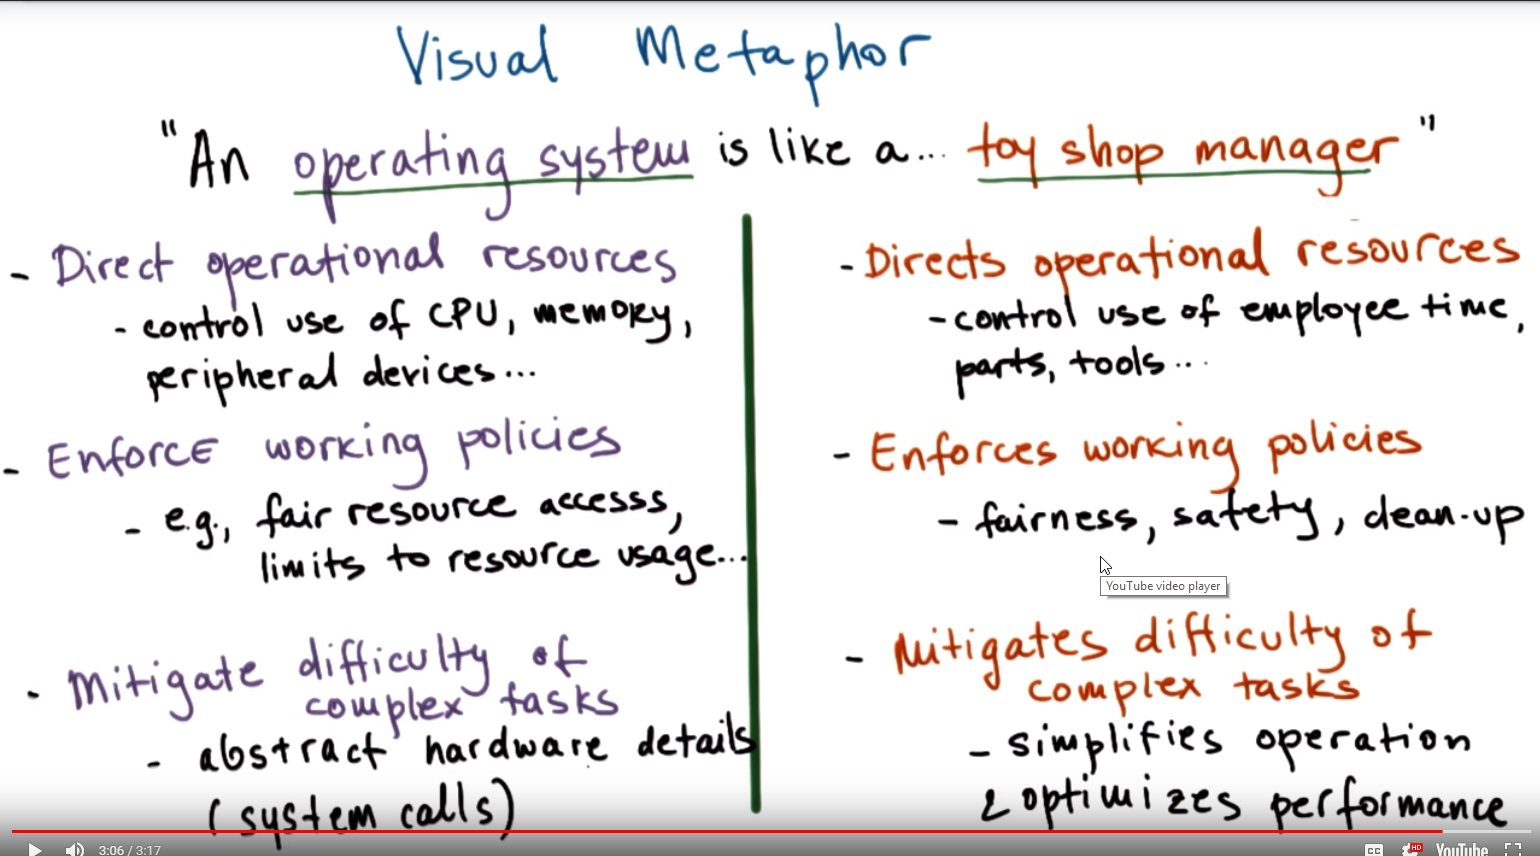 Visual Metaphor
"An operating system is like a... toy shop manager"
- Direct operational resources
- control use of CPU, memory,
peripheral devices...
- Enforce working policies
- e.g., fair resource accesss,
limits to resource usage...
- Mitigate difficulty of
complex tasks
- abstract hardware details
(system calls)
- Directs operational resources
- control use of employee time,
parts, tools...
- Enforces working policies
- fairness, safety, clean-up
YouTube video player
- Mitigates difficulty of
complex tasks
- simplifies operation
& optimizes performance
3:06 / 3:17
CC HD YouTube